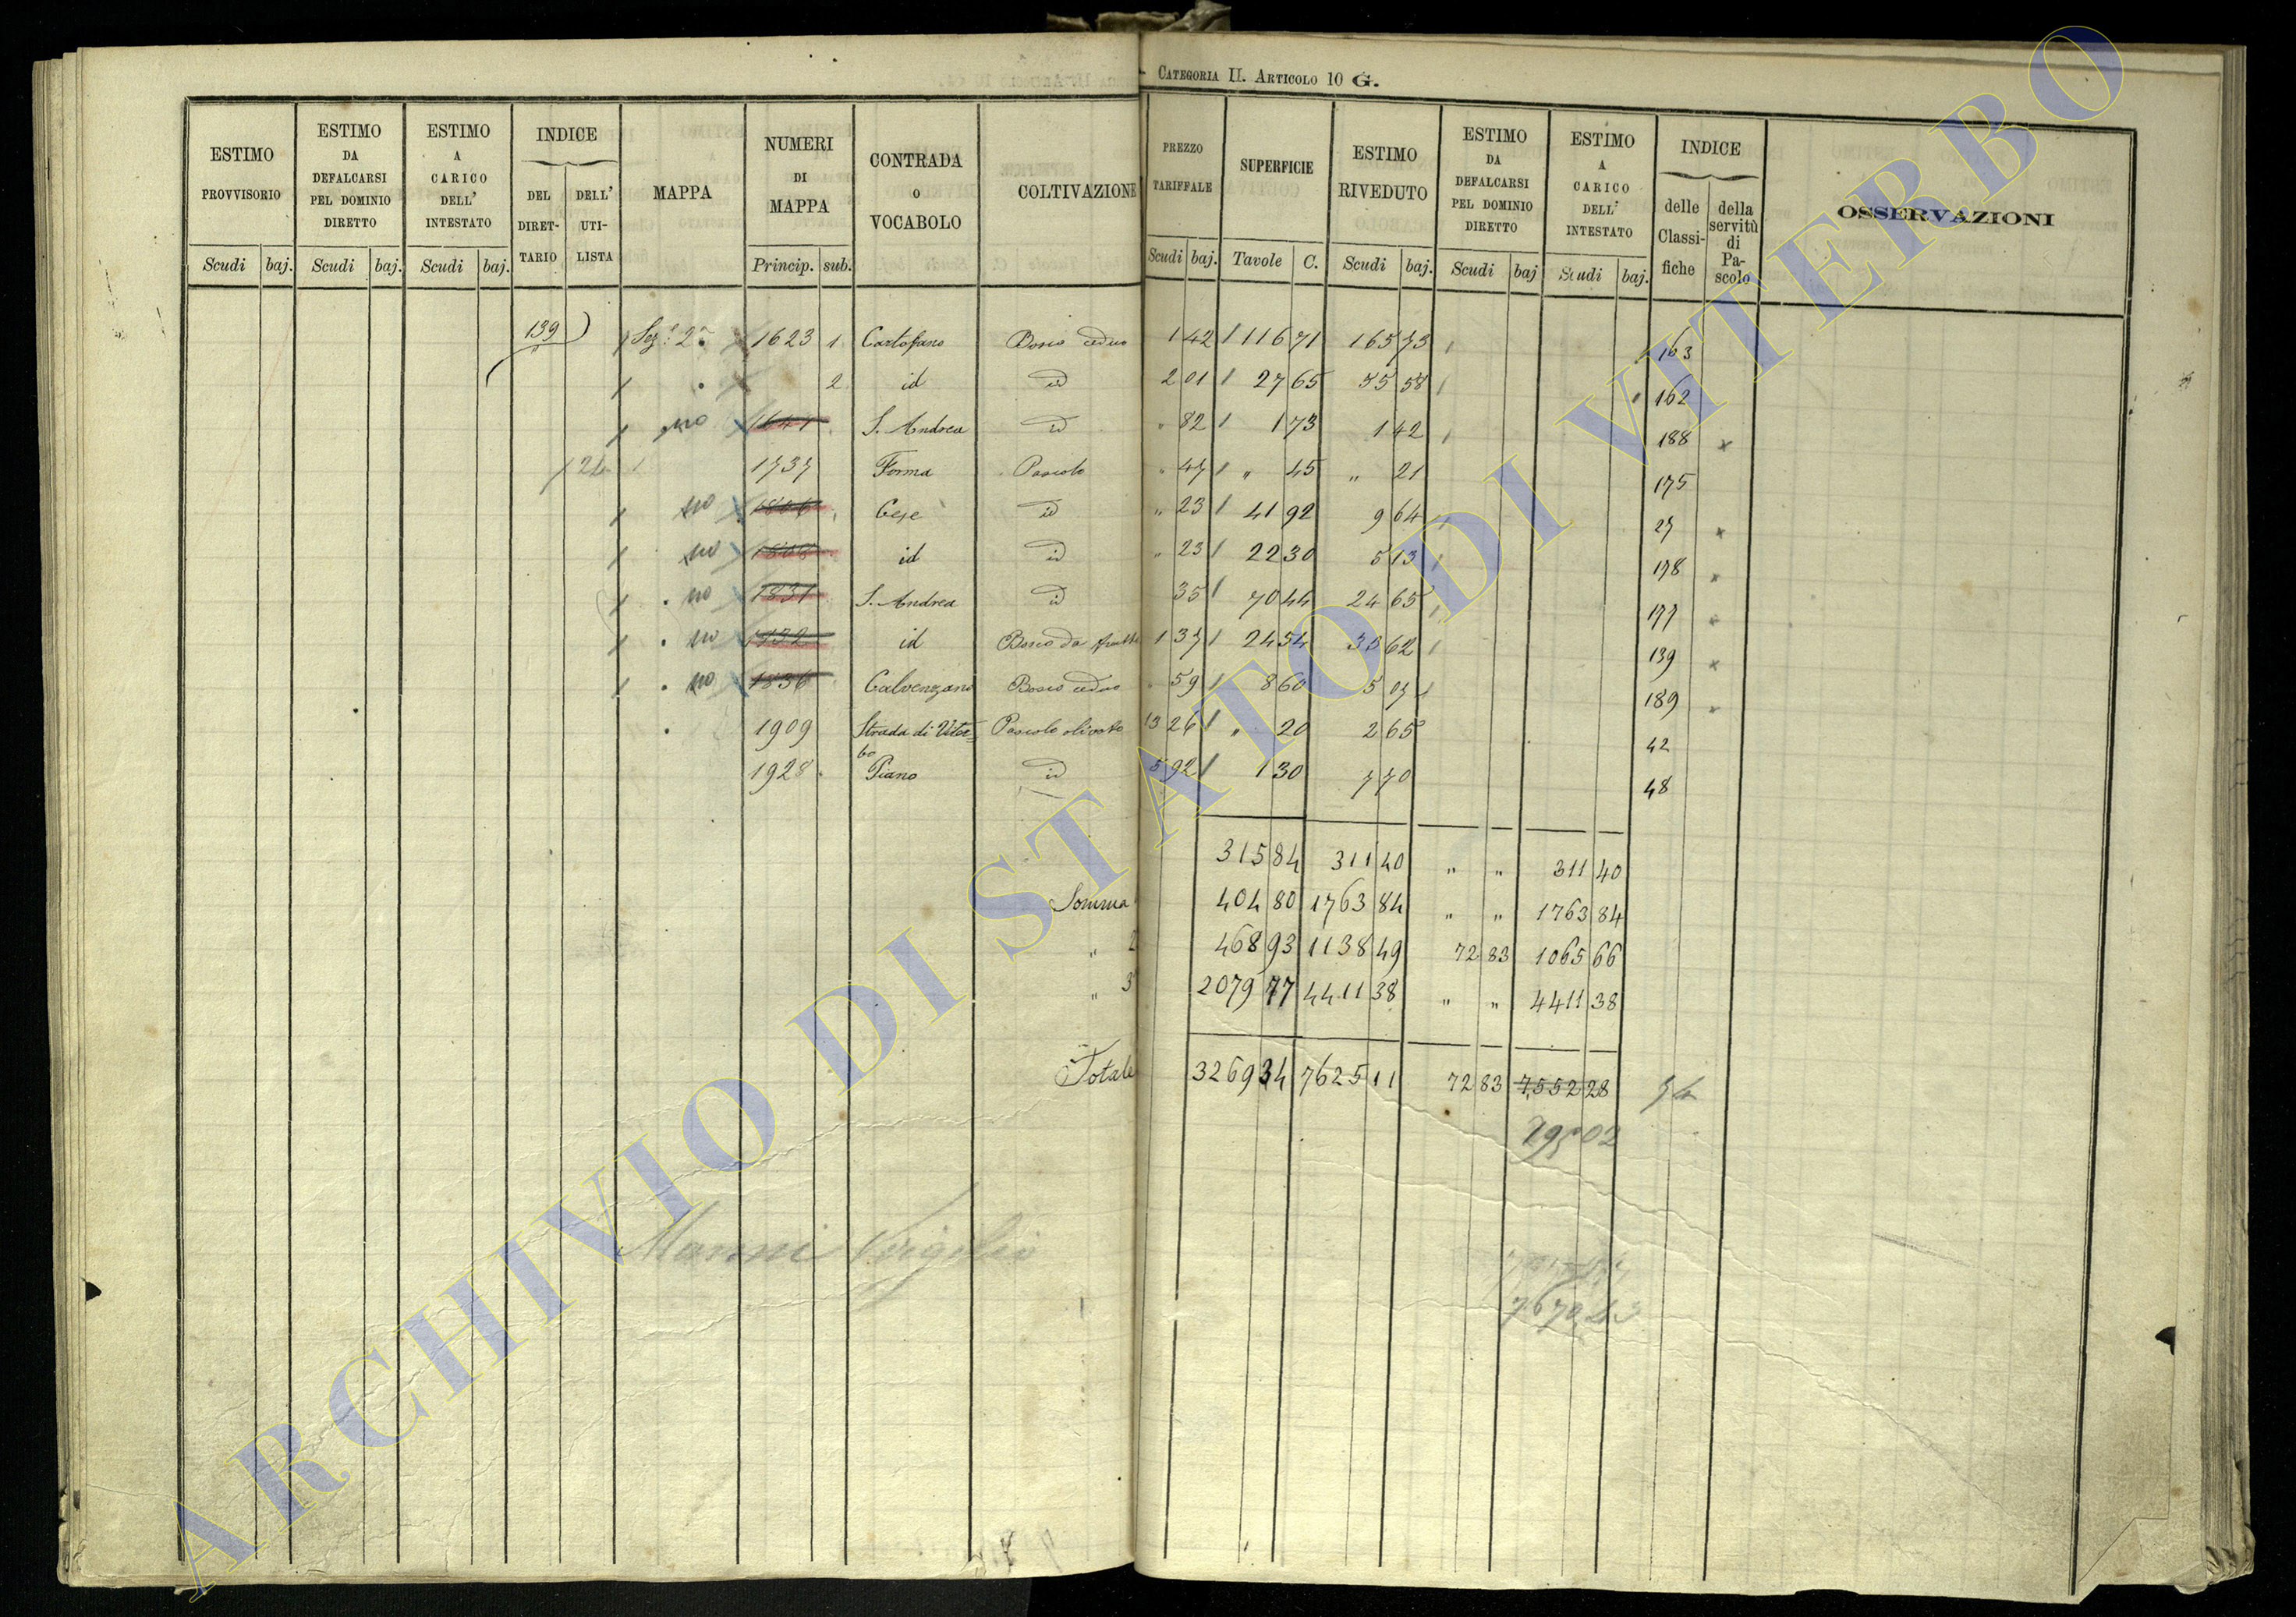 CATEGORIA II. ARTICOLO 10 G.
ESTIMO PROVVISORIO | ESTIMO DA DEFALCARSI PEL DOMINIO DIRETTO | ESTIMO A CARICO DELL' INTESTATO | INDICE DEL DIRET- TARIO | DELL' UTI- LISTA | MAPPA | NUMERI DI MAPPA | CONTRADA O VOCABOLO | COLTIVAZIONE | PREZZO TARIFFALE | SUPERFICIE | ESTIMO RIVEDUTO | ESTIMO DA DEFALCARSI PEL DOMINIO DIRETTO | ESTIMO A CARICO DELL' INTESTATO | INDICE delle Classi- fiche | della servitù di Pa- scolo | OSSERVAZIONI
Scudi baj. Scudi baj. Scudi baj. Princip. sub. Scudi baj. Tavole C. Scudi baj. Scudi baj Scudi baj.
139 Sez. 2a 1623 1 Cartofano Bosco ceduo 1 42 116 71 165 73 163
2 id id 2 01 27 65 55 58 162
no 1641 S. Andrea id " 82 1 73 1 42 188 x
24 1737 Forma Pascolo " 47 " 45 " 21 175
no 1806 Cese id " 23 41 92 9 64 27 x
no 1808 id id " 23 22 30 5 13 178 x
no 1831 S. Andrea id 35 70 44 24 65 177 x
no 1832 id Bosco da frutto 1 37 24 54 33 62 139 x
no 1836 Calvenzano Bosco ceduo 59 8 60 5 07 189 x
1909 Strada di Viter= bo Pascolo olivato 13 26 " 20 2 65 42
1928 Piano id 5 92 1 30 7 70 48
315 84 311 40 " " 311 40
Somma 404 80 1763 84 " " 1763 84
" 2 468 93 1138 49 72 83 1065 66
" 3 2079 77 4411 38 " " 4411 38
Totale 3269 34 7625 11 72 83 7552 28
Manni Virgilio